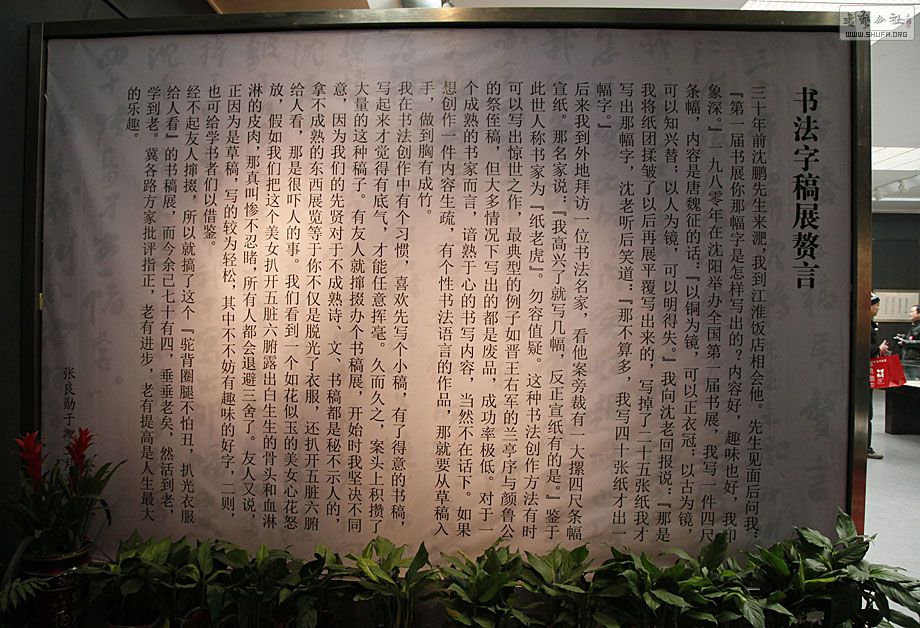 书法字稿展赘言
三十年前沈鹏先生来淝，我到江淮饭店相会他。先生见面后问我：
『第一届书展你那幅字是怎样写出的？内容好，趣味也好，我印
象深。』一九八零年在沈阳举办全国第一届书展，我写一件四尺
条幅，内容是唐魏征的话：『以铜为镜，可以正衣冠：以古为镜，
可以知兴替：以人为镜，可以明得失。』我向沈老回报说：『那是
我将纸团揉皱了以后再展平覆写出来的，写掉了二十五张纸我才
写出那幅字，沈老听后笑道：『那不算多，我写四十张纸才出一
幅字。』
后来我到外地拜访一位书法名家，看他案旁裁有一大摞四尺条幅
宣纸。那名家说：『我高兴了就写几幅，反正宣纸有的是。』鉴于
此世人称书家为『纸老虎』。勿容值疑。这种书法创作方法有时
可以写出惊世之作，最典型的例子如晋王右军的兰亭序与颜鲁公
的祭侄稿，但大多情况下写出的都是废品，成功率极低。对于一
个成熟的书家而言，谙熟于心的书写内容，当然不在话下。如果
想创作一件内容生疏，有个性书法语言的作品，那就要从草稿入
手，做到胸有成竹。
我在书法创作中有个习惯，喜欢先写个小稿，有了得意的书稿，
写起来才觉得有底气，才能任意挥毫。久而久之，案头上积攒了
大量的这种稿子。有友人就撺掇办个书稿展，开始时我坚决不同
意，因为我们的先贤对于不成熟诗、文、书稿都是秘不示人的，
拿不成熟的东西展览等于你不仅是脱光了衣服，还扒开五脏六腑
给人看，那是很吓人的事。我们看到一个如花似玉的美女心花怒
放，假如我们把这个美女扒开五脏六腑露出白生生的骨头和血淋
淋的皮肉，那真叫惨不忍睹，所有人都会退避三舍了。友人又说，
正因为是草稿，写的较为轻松，其中不不妨有趣味的好字，二则，
也可给学书者们以借鉴。
经不起友人撺掇，所以就搞了这个『驼背圈腿不怕丑，扒光衣服
给人看』的书稿展，而今余已七十有四，垂垂老矣，然活到老，
学到老。冀各路方家批评指正，老有进步，老有提高是人生最大
的乐趣。
张良勋于
书法公社
WWW.SHUFA.ORG